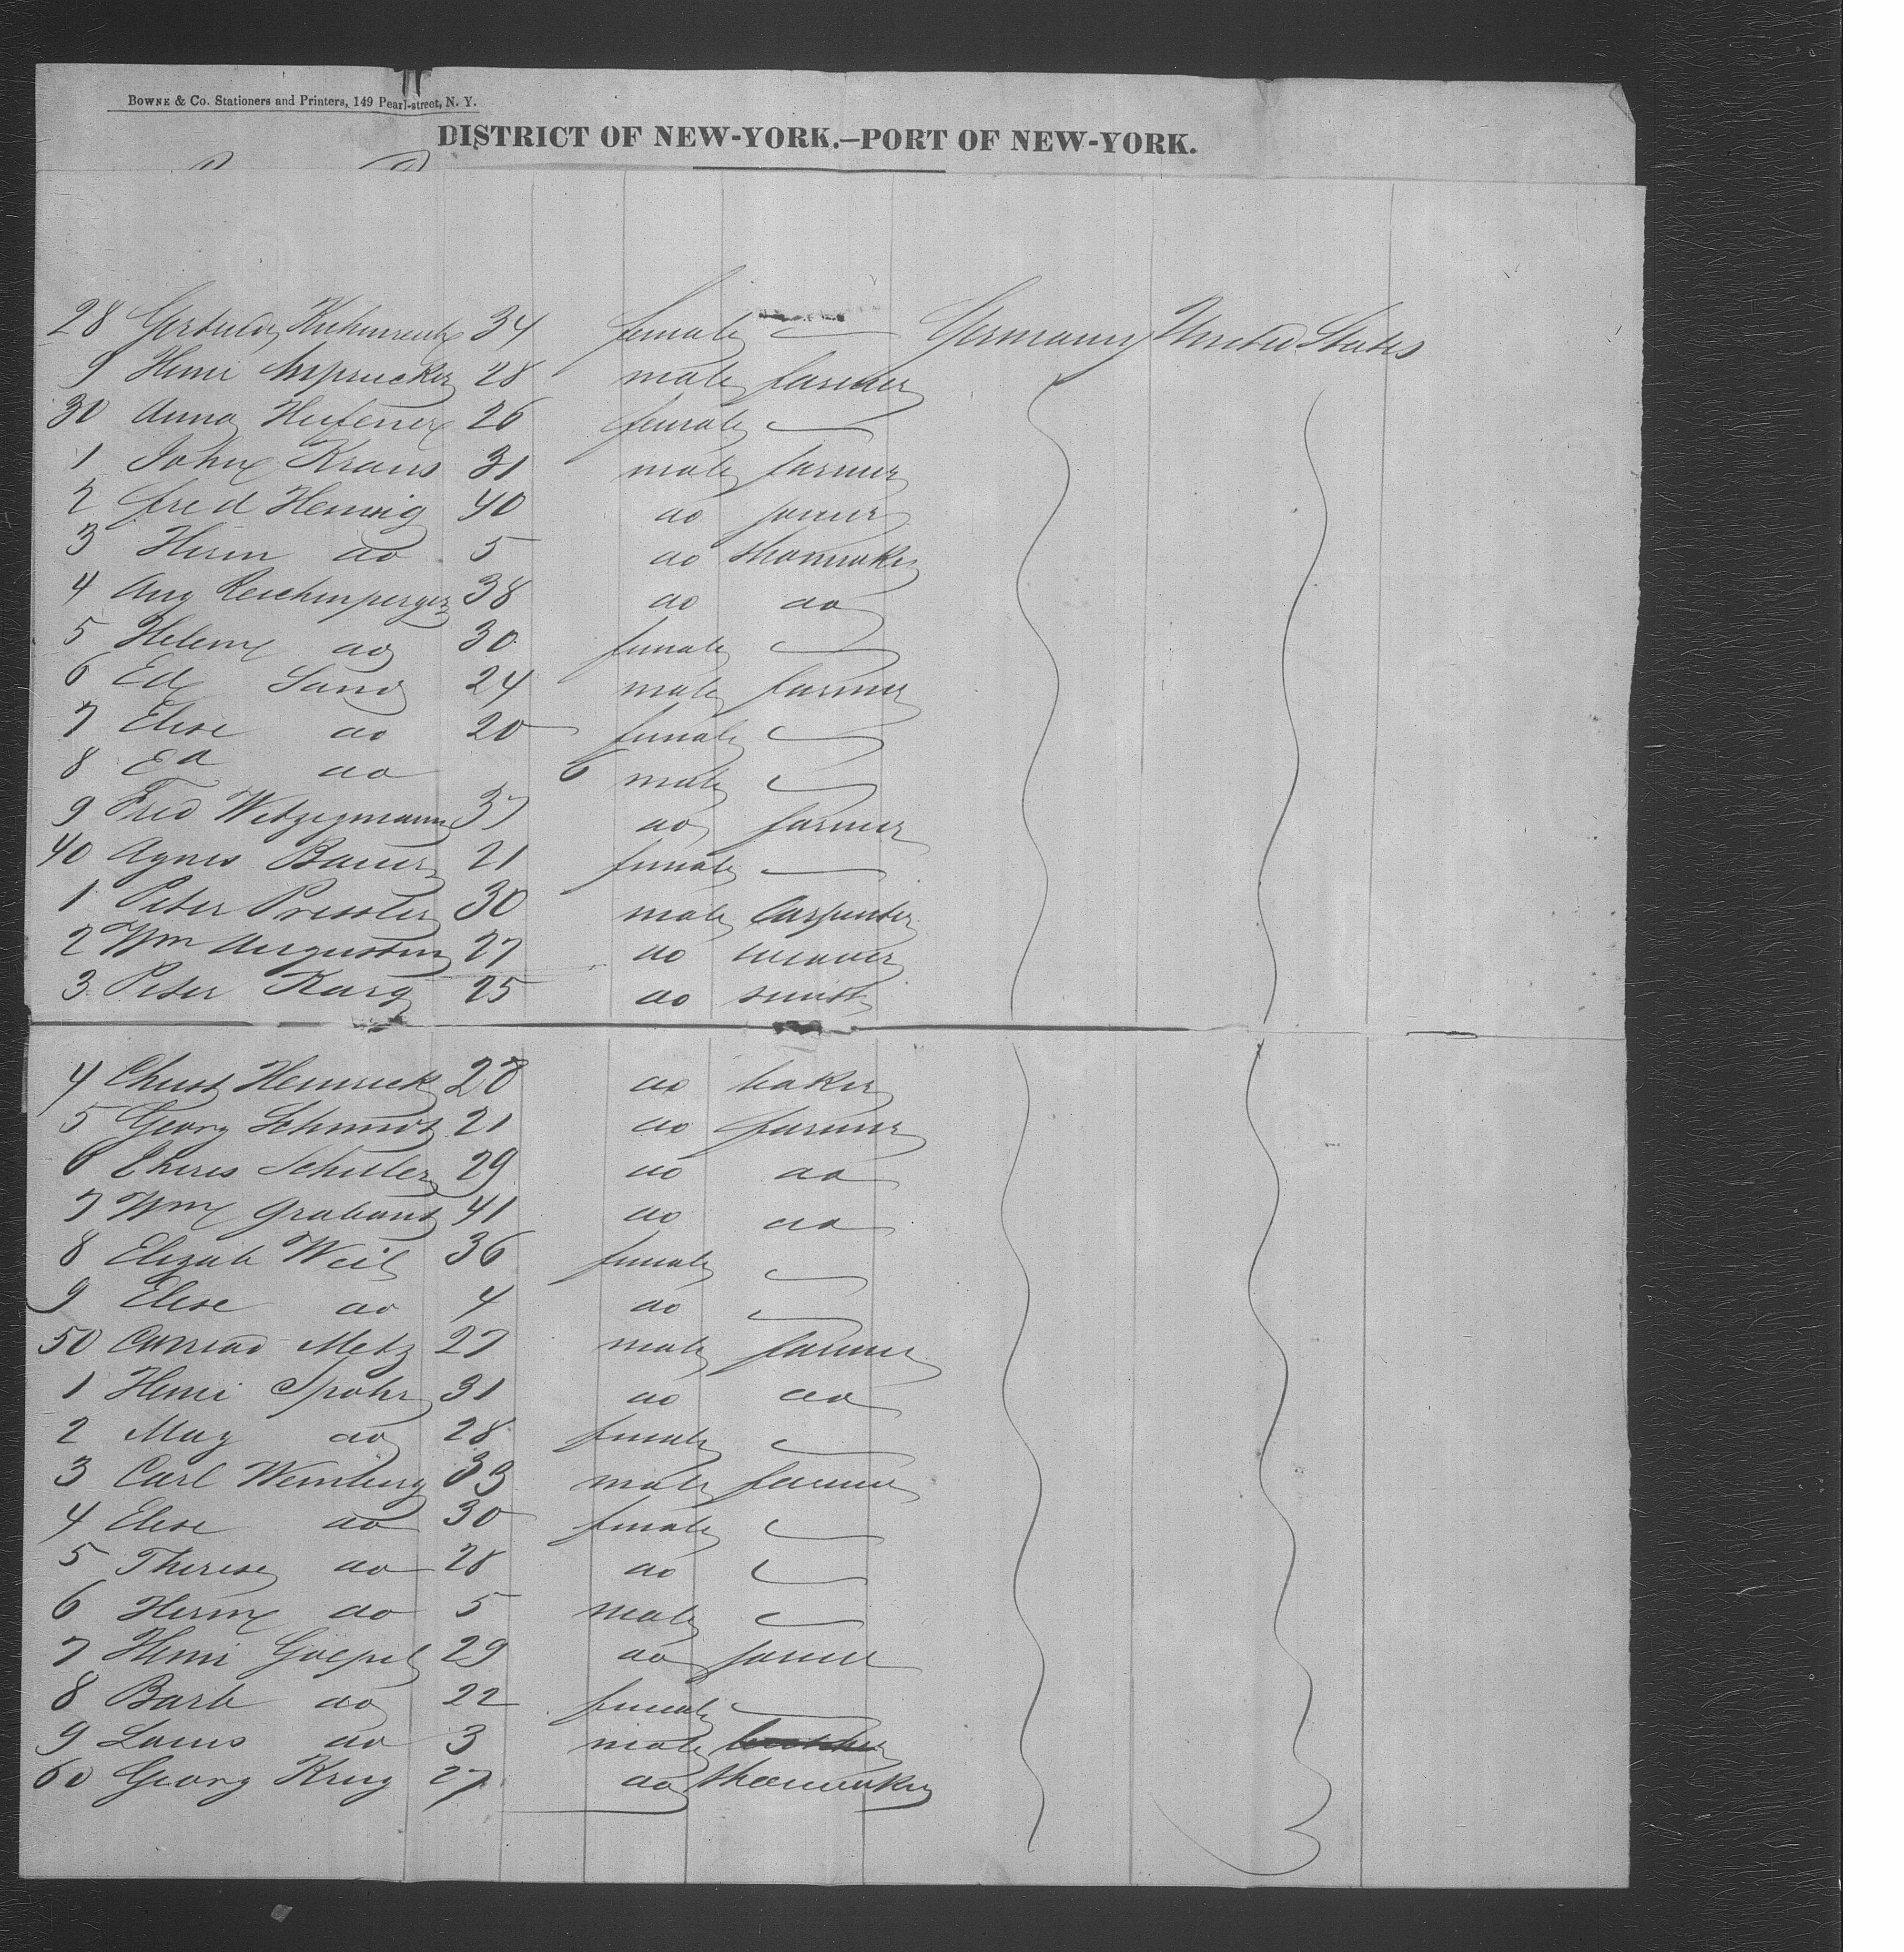 BOWNE & Co. Stationers and Printers, 149 Pearl-street, N. Y.
DISTRICT OF NEW-YORK.—PORT OF NEW-YORK.
28 34 female — Germany United States
9 Henri 28 male farmer
30 Anna 26 female —
1 John Kraus 31 male farmer
2 Fred Hennig 40 do joiner
3 Herm do 5 do shoemaker
4 Aug Reichenperger 38 do do
5 Helene do 30 female —
6 Ed Sand 24 male farmer
7 Elise do 20 female —
8 Ed do 6 male —
9 Fred Witzigmann 37 do farmer
40 Agnes Bauer 21 female —
1 Peter Pressler 30 male Carpenter
2 Wm Augustin 27 do weaver
3 Peter Karg 25 do smith
4 Christ Henrick 28 do baker
5 Georg Schmidt 21 do farmer
6 Schuler 29 do do
7 Wm 41 do do
8 Elizab Weil 36 female —
9 Elise do 4 do —
50 Conrad Metz 27 male farmer
1 Henri Spohr 31 do do
2 Mag do 28 female —
3 Carl Weinberg 33 male farmer
4 Elise do 30 female —
5 Therese do 28 do —
6 Herm do 5 male —
7 Henri Goepel 29 do joiner
8 Barb do 22 female —
9 Louis do 3 male butcher
60 Georg Krug 27 do shoemaker